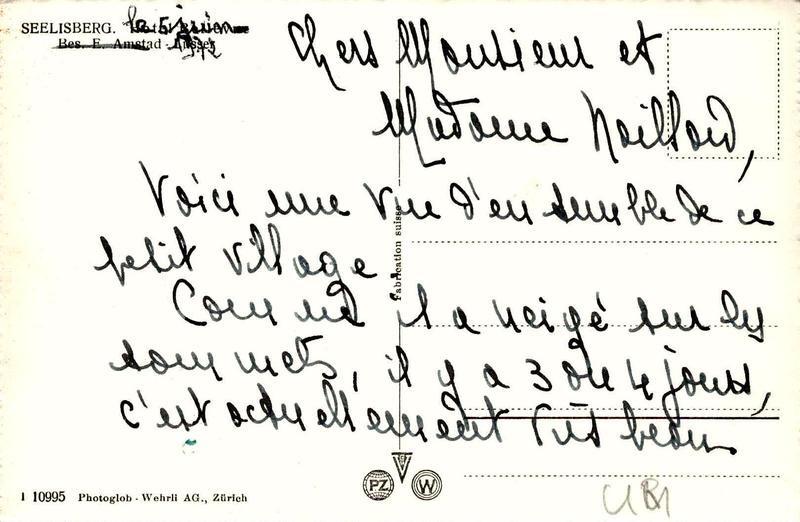 SEELISBERG. Hotel Bellevue
le 5 juin
Bes. E. Amstad - Ausser
Chers Monsieur et
Madame Maillard,
Voici une vue d'ensemble de ce
petit village.
Comme il a neigé sur les
sommets, il y a 3 ou 4 jours,
c'est actuellement très beau.
Fabrication suisse
PZ
W
1 10995 Photoglob - Wehrli AG., Zürich